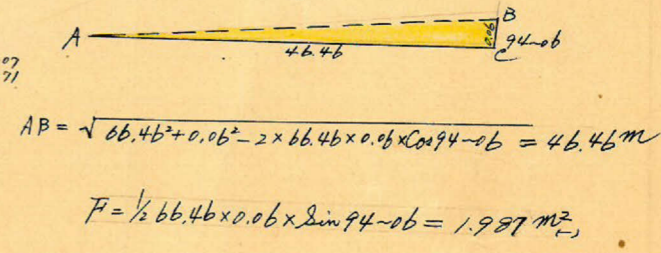 B
A
0.06
94~06
C
46.46
07
71
AB = √66.46²+0.06²-2×66.46×0.06×Cos94~06 = 46.46m
F = ½ 66.46×0.06×Sin94~06 = 1.987 m²(-)